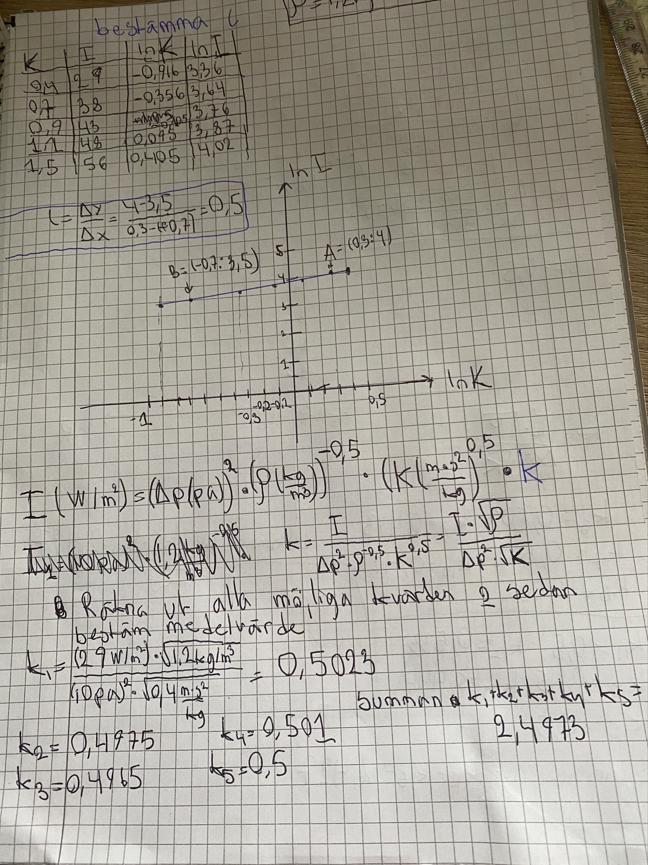 bestämma
K | I | lnK | ln I
0,4 | 29 | -0,916 | 3,36
0,7 | 38 | -0,356 | 3,64
0,9 | 43 | 3,76
1,1 | 48 | 0,095 | 3,87
1,5 | 56 | 0,405 | 4,02
= Δy/Δx = 4-3,5 / 0,3-(-0,7) = 0,5
ln I
B=(-0,7:3,5)
A=(0,3:4)
5
4
3
2
1
lnK
-1
-0,3
-0,2
-0,2
0,5
I (W/m²) = (Δp(pa))² · (ρ(kg/m³))^-0,5 · (K(m·s²/kg))^0,5 · k
k = I / Δp²·ρ^-0,5·K^0,5 = I·√ρ / Δp²·√K
Räkna ut alla möjliga k värden sedan
bestäm medelvärde
k₁ = (29 W/m²)·√1,2kg/m³ / (10pa)²·√0,4 m·s²/kg = 0,5023
Summan k₁+k₂+k₃+k₄+k₅=
2,4973
k₂ = 0,4975
k₄=0,501
k₃=0,4965
k₅=0,5